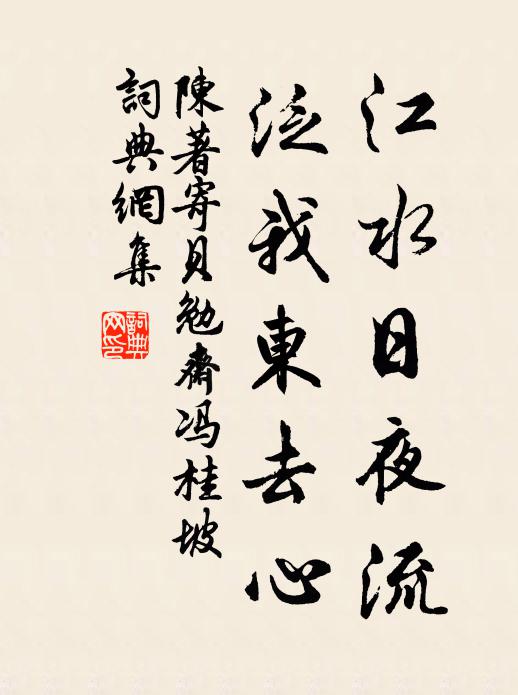 江水日夜流
泛我東去心
陳著寄貝勉齋冯桂坡
詞典網集
詞典
网印